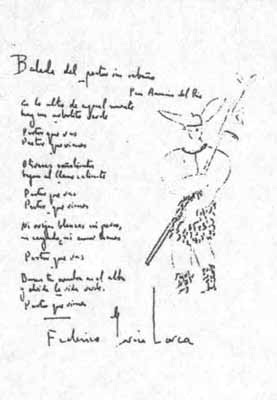 Balada del pastor sin rebaño
Para Amanio del Río
En lo alto de aquel monte
hay un arbolito verde
Pastor que vas
Pastor que vienes
Olivares soñolientos
bajan al llano caliente
Pastor que vas
Pastor que vienes
Ni ovejas blancas ni perro,
ni cayado, ni amor tienes
Pastor que vas
en el
Pastor que vienes
Federico García Lorca